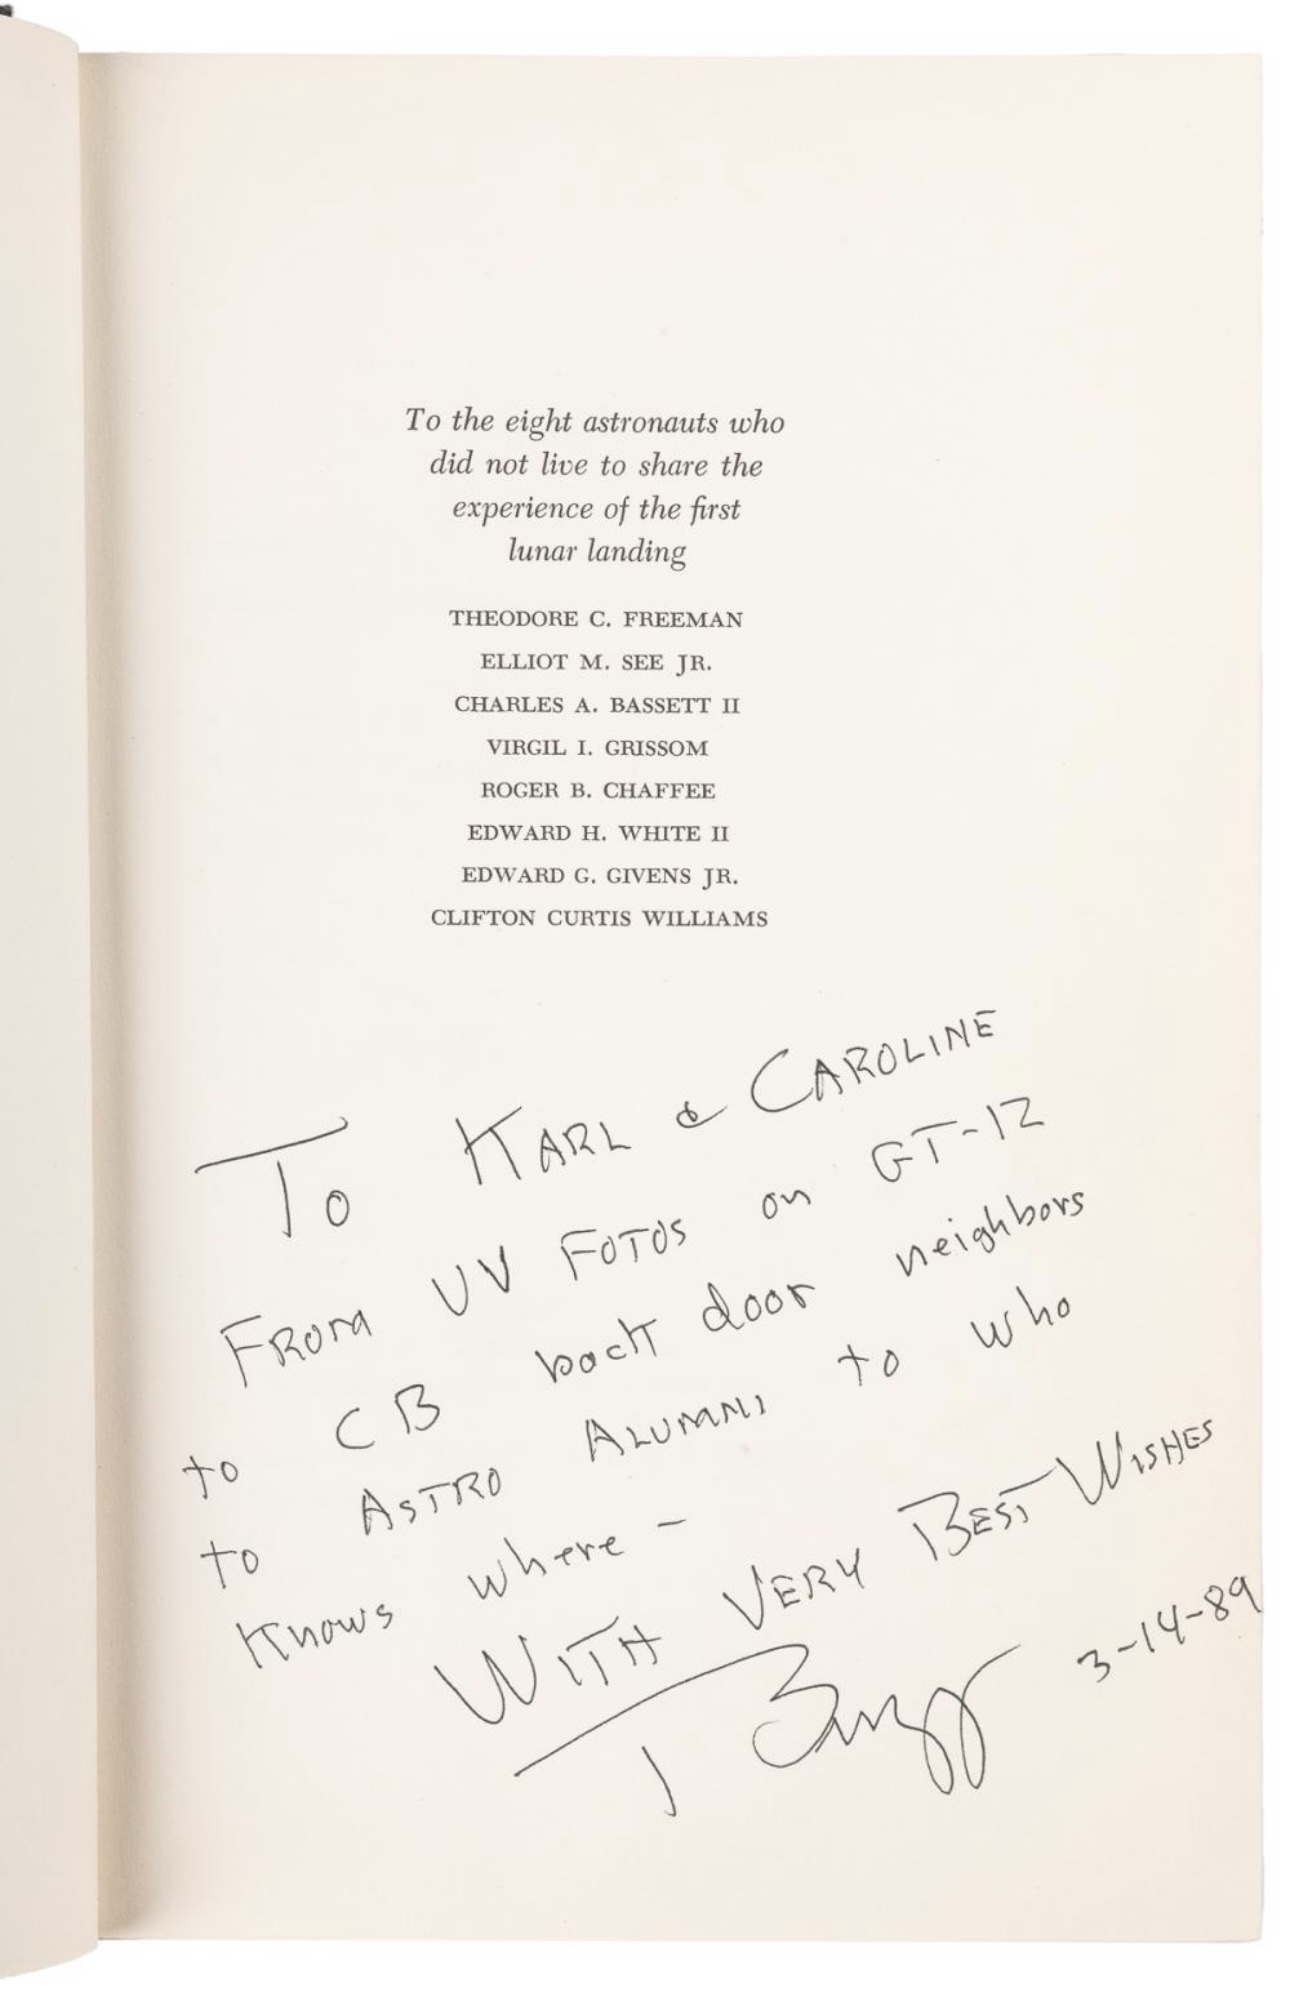 To the eight astronauts who
did not live to share the
experience of the first
lunar landing
THEODORE C. FREEMAN
ELLIOT M. SEE JR.
CHARLES A. BASSETT II
VIRGIL I. GRISSOM
ROGER B. CHAFFEE
EDWARD H. WHITE II
EDWARD G. GIVENS JR.
CLIFTON CURTIS WILLIAMS
To KARL & CAROLINE
FROM UV FOTOS on GT-12
to CB back door neighbors
to ASTRO ALUMNI to who
Knows where -
WITH VERY BEST WISHES
Buzz 3-14-89